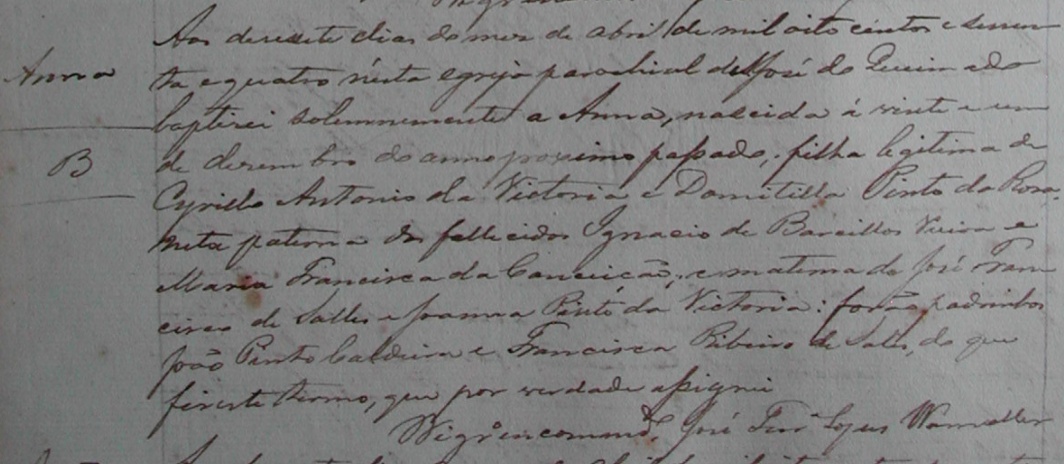 Aos desesete dias do mez de abril de mil oito centos e sessen
Anna
ta e quatro nesta egreja parochial de São José do Queimado
baptizei solemnemente a Anna, nascida á vinte e um
B
de desembro do anno proximo passado, filha legitima de
Cyrillo Antonio da Victoria e Domitilla Pinto da Rosa,
neta paterna dos fallecidos Ignacio de Barcellos Vieira e
Maria Francisca da Conceição, e materna de José Fran
cisco de Salles e Joanna Pinto da Victoria: forão padrinhos
João Pinto Caldeira e Francisca Ribeiro de Salles, do que
fiz este termo, que por verdade assignei
Vigrº encomendº José Lopes Wanseller